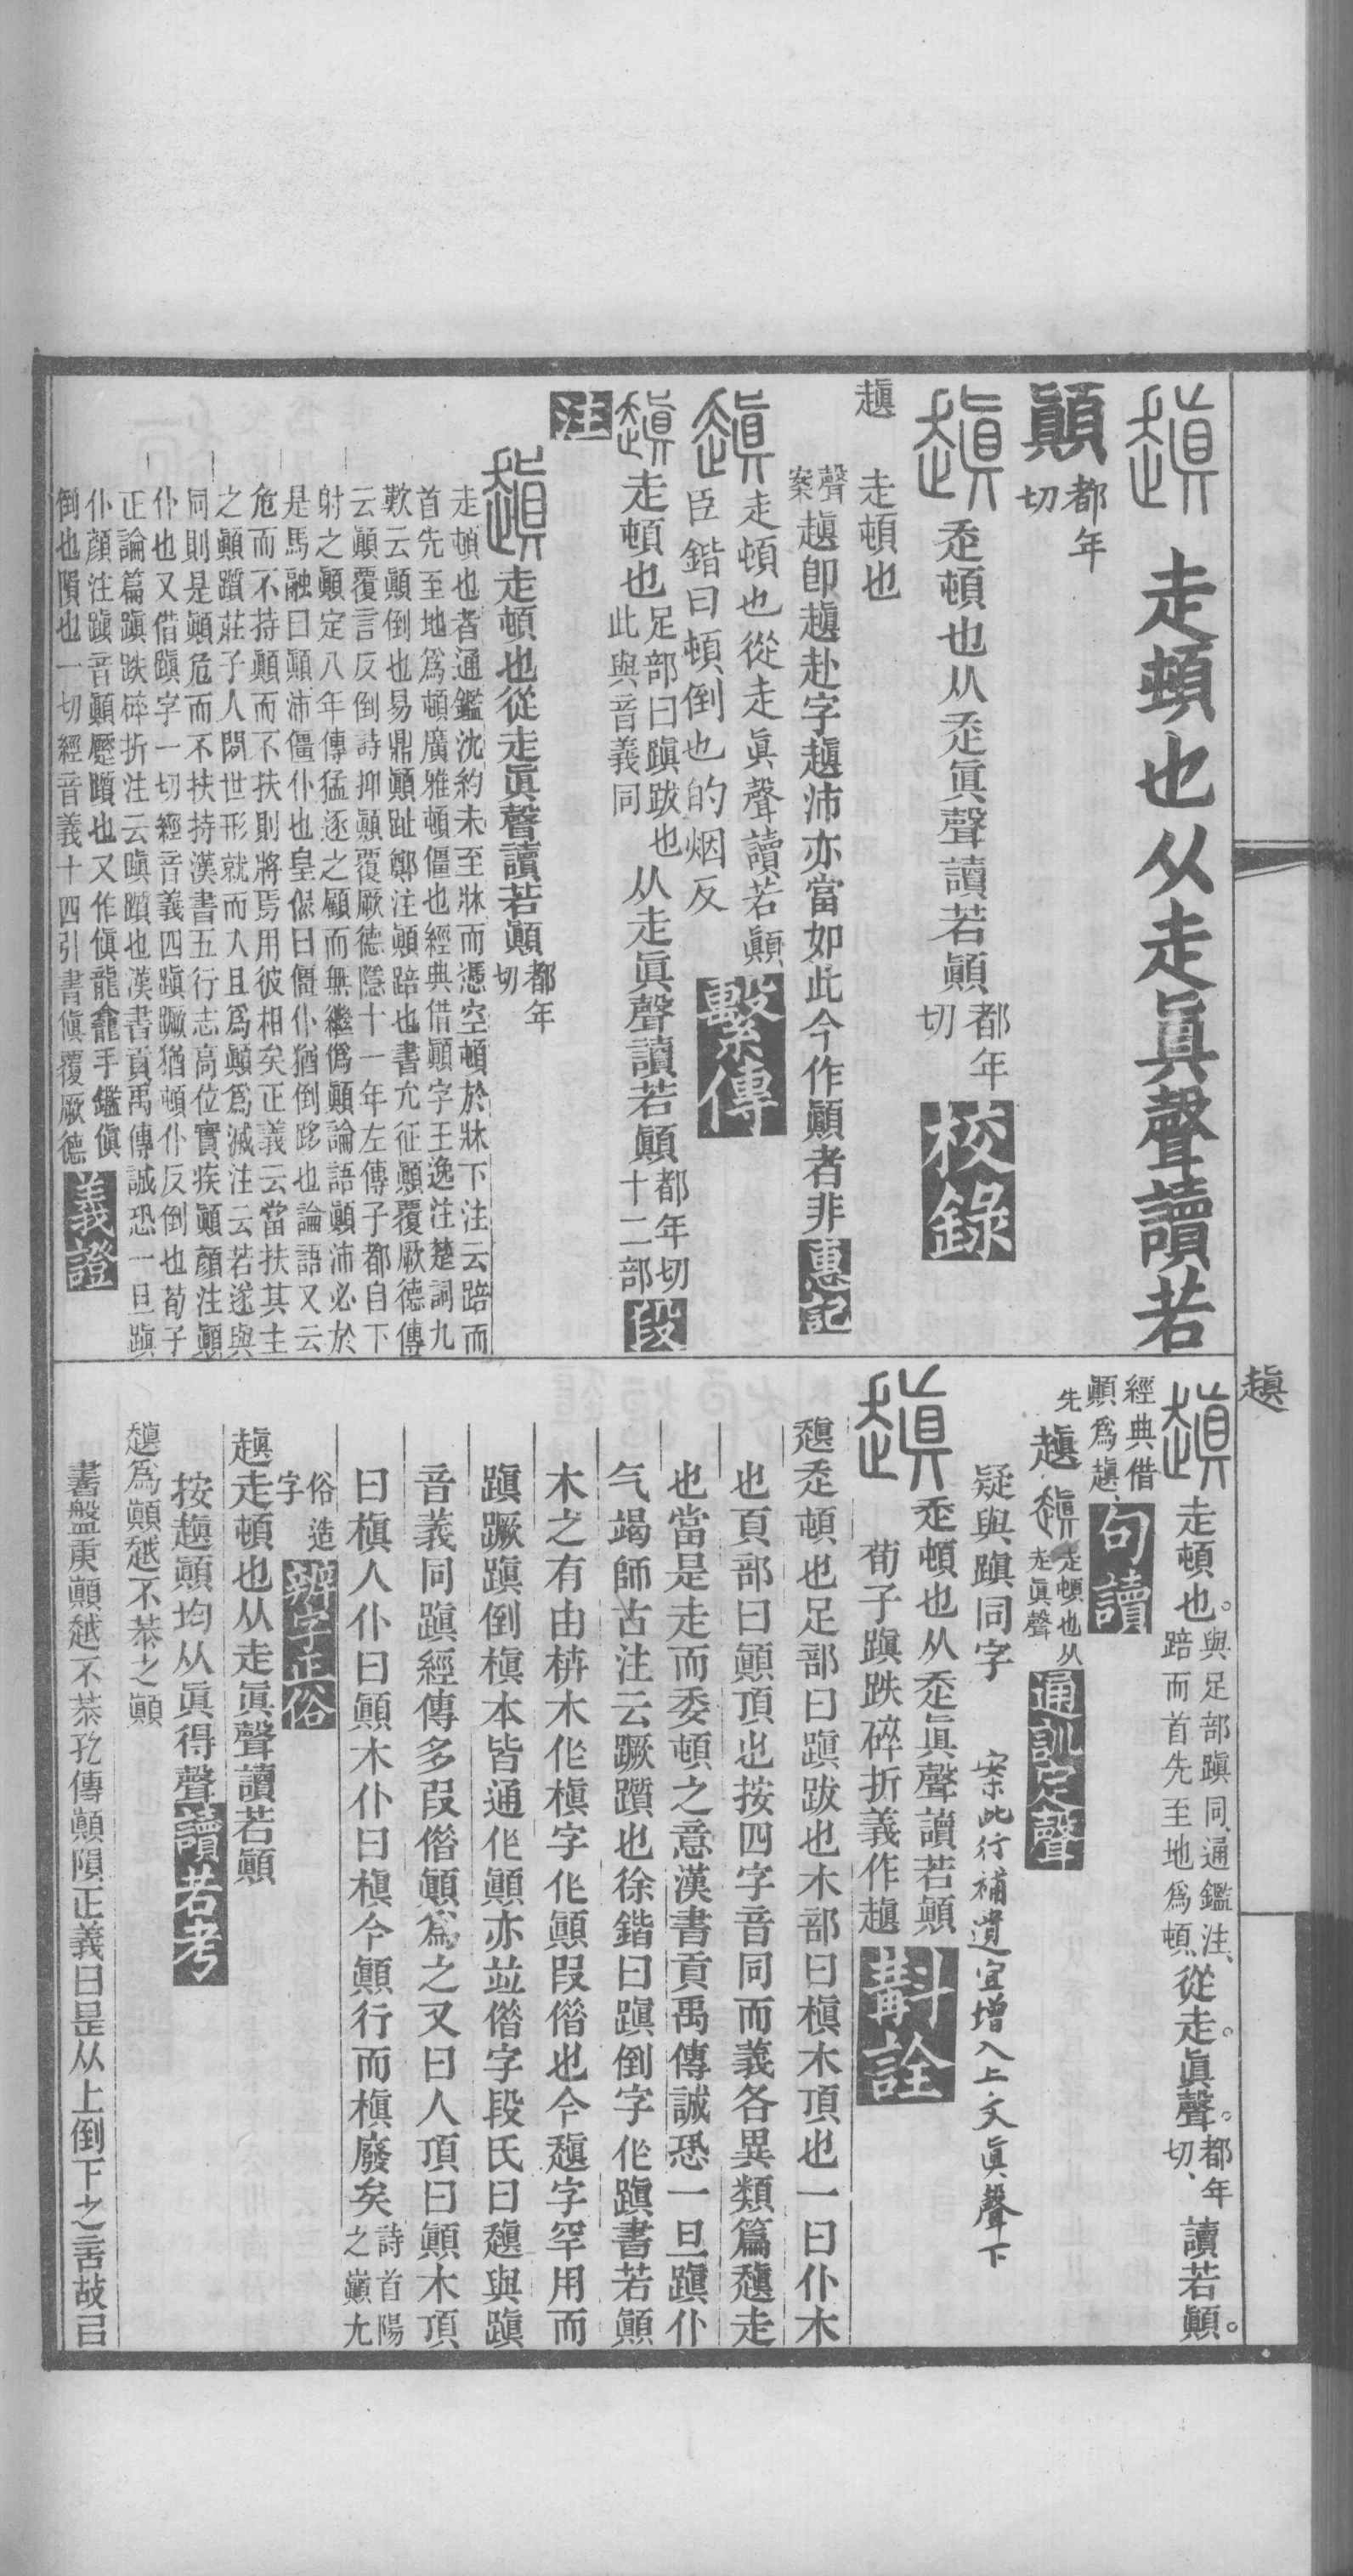 趲 走頓也从走眞聲讀若
顚 都年
切
走頓也从走眞聲讀若顚 都年
切 校錄
趲 走頓也
聲
案 趲卽趲赴字趲沛亦當如此今作顚者非 惠記
走頓也從走眞聲讀若顚
臣鍇曰頓倒也的烟反 繫傳
走頓也 足部曰蹎跋也
此與音義同 从走眞聲讀若顚 都年切
十二部 段
注
走頓也從走眞聲讀若顚 都年
切
走頓也者通鑑沈約未至牀而憑空頓於牀下注云踣而
首先至地爲頓廣雅頓僵也經典借顚字王逸注楚詞九
歎云顚倒也易鼎顚趾鄭注顚踣也書允征顚覆厥德傳
云顚覆言反倒詩抑顚覆厥德隱十一年左傳子都自下
射之顚定八年傳猛逐之顧而無繼僞顚論語顚沛必於
是馬融曰顚沛僵仆也皇侃曰僵仆猶倒跲也論語又云
危而不持顚而不扶則將焉用彼相矣正義云當扶其主
之顚躓莊子人閒世形就而入且爲顚爲滅注云若遂與
同則是顚危而不扶持漢書五行志高位實疾顚顏注顚
仆也又借蹎字一切經音義四蹎蹶猶頓仆反倒也荀子
正論篇蹎跌碎折注云蹎躓也漢書貢禹傳誠恐一旦蹎
仆顏注蹎音顚蹷躓也又作傎龍龕手鑑傎
倒也隕也一切經音義十四引書傎覆厥德 義證
趲
走頓也。與足部蹎同通鑑注、
踣而首先至地爲頓、從走。眞聲。都年
切、讀若顚。
經典借
顚爲趲、句讀
先 趲 走頓也从
走眞聲 通訓定聲
疑與蹎同字 案此行補遺宜增入上文眞聲下
走頓也从走眞聲讀若顚
荀子蹎跌碎折義作趲 斠詮
趲走頓也足部曰蹎跋也木部曰槇木頂也一曰仆木
也頁部曰顚頂也按四字音同而義各異類篇趲走
也當是走而委頓之意漢書貢禹傳誠恐一旦蹎仆
气竭師古注云蹶躓也徐鍇曰蹎倒字作蹎書若顚
木之有由枿木作槇字作顚叚僭也今趲字罕用而
蹎蹶蹎倒槇本皆通作顚亦並僭字段氏曰趲與蹎
音義同蹎經傳多叚僭顚爲之又曰人頂曰顚木頂
曰槇人仆曰顚木仆曰槇今顚行而槇廢矣 詩首陽
之巔尤
俗造
字 辨字正俗
趲走頓也从走眞聲讀若顚
按趲顚均从眞得聲 讀若考
趲爲顚越不恭之顚
書盤庚顚越不恭孔傳顚隕正義曰是从上倒下之言故曰